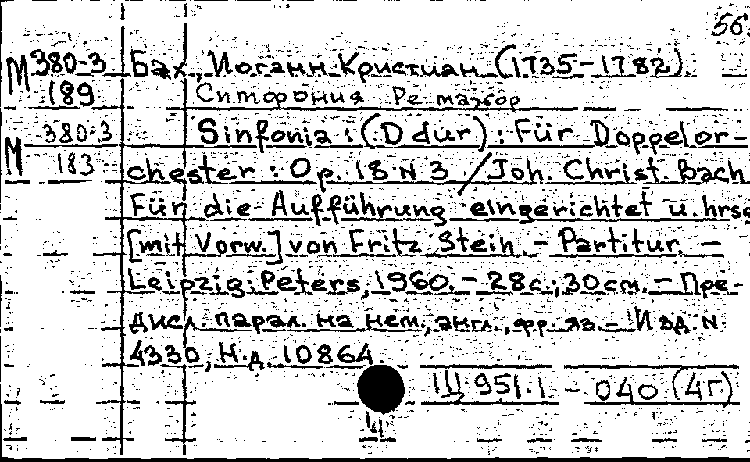 56
М 380-3 Бах, Иоганн Кристиан (1735-1782).
189 Симфония Ре мажор
М 380-3 Sinfonia : (D dur) : Für Doppelor-
183 chester : Op. 18 N 3 / Joh. Christ. Bach
Für die Aufführung eingerichtet u. hrsg
[mit Vorw.] von Fritz Stein. - Partitur. -
Leipzig: Peters, 1960. - 28 с.; 30 см. - Пре-
дисл. парал. на нем., англ., фр. яз. - Изд. N
4330, Н.д. 10864.
Щ 951.1 - 040 (4Г)